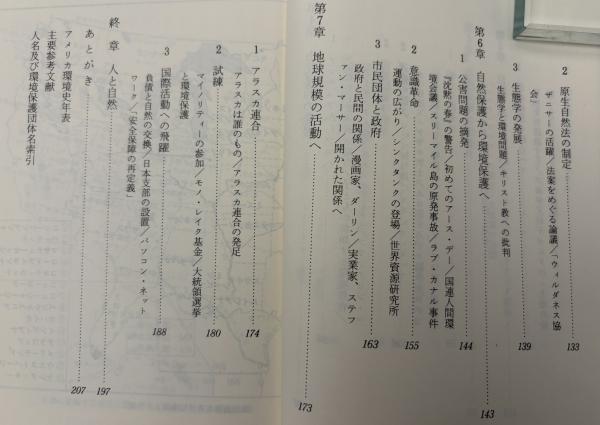 2 原生自然法の制定……133
ザニサーの活躍/法案をめぐる論議/「ウィルダネス協
会」
3 生態学の発展……139
生態学と環境問題/キリスト教への批判
第6章 自然保護から環境保護へ……143
1 公害問題の摘発……144
『沈黙の春』の警告/初めてのアース・デー/国連人間環
境会議/スリーマイル島の原発事故/ラブ・カナル事件
2 意識革命……155
運動の広がり/シンクタンクの登場/世界資源研究所
3 市民団体と政府……163
政府と民間の関係/漫画家、ダーリン/実業家、ステフ
ァン・マーサー/開かれた関係へ
第7章 地球規模の活動へ……173
1 アラスカ連合……174
アラスカは誰のもの/アラスカ連合の発足
2 試練……180
マイノリティーの参加/モノ・レイク基金/大統領選挙
と環境保護
3 国際活動への飛躍……188
負債と自然の交換/日本支部の設置/パソコン・ネット
ワーク/「安全保障の再定義」
終章 人と自然……197
あとがき……207
アメリカ環境史年表
主要参考文献
人名及び環境保護団体名索引